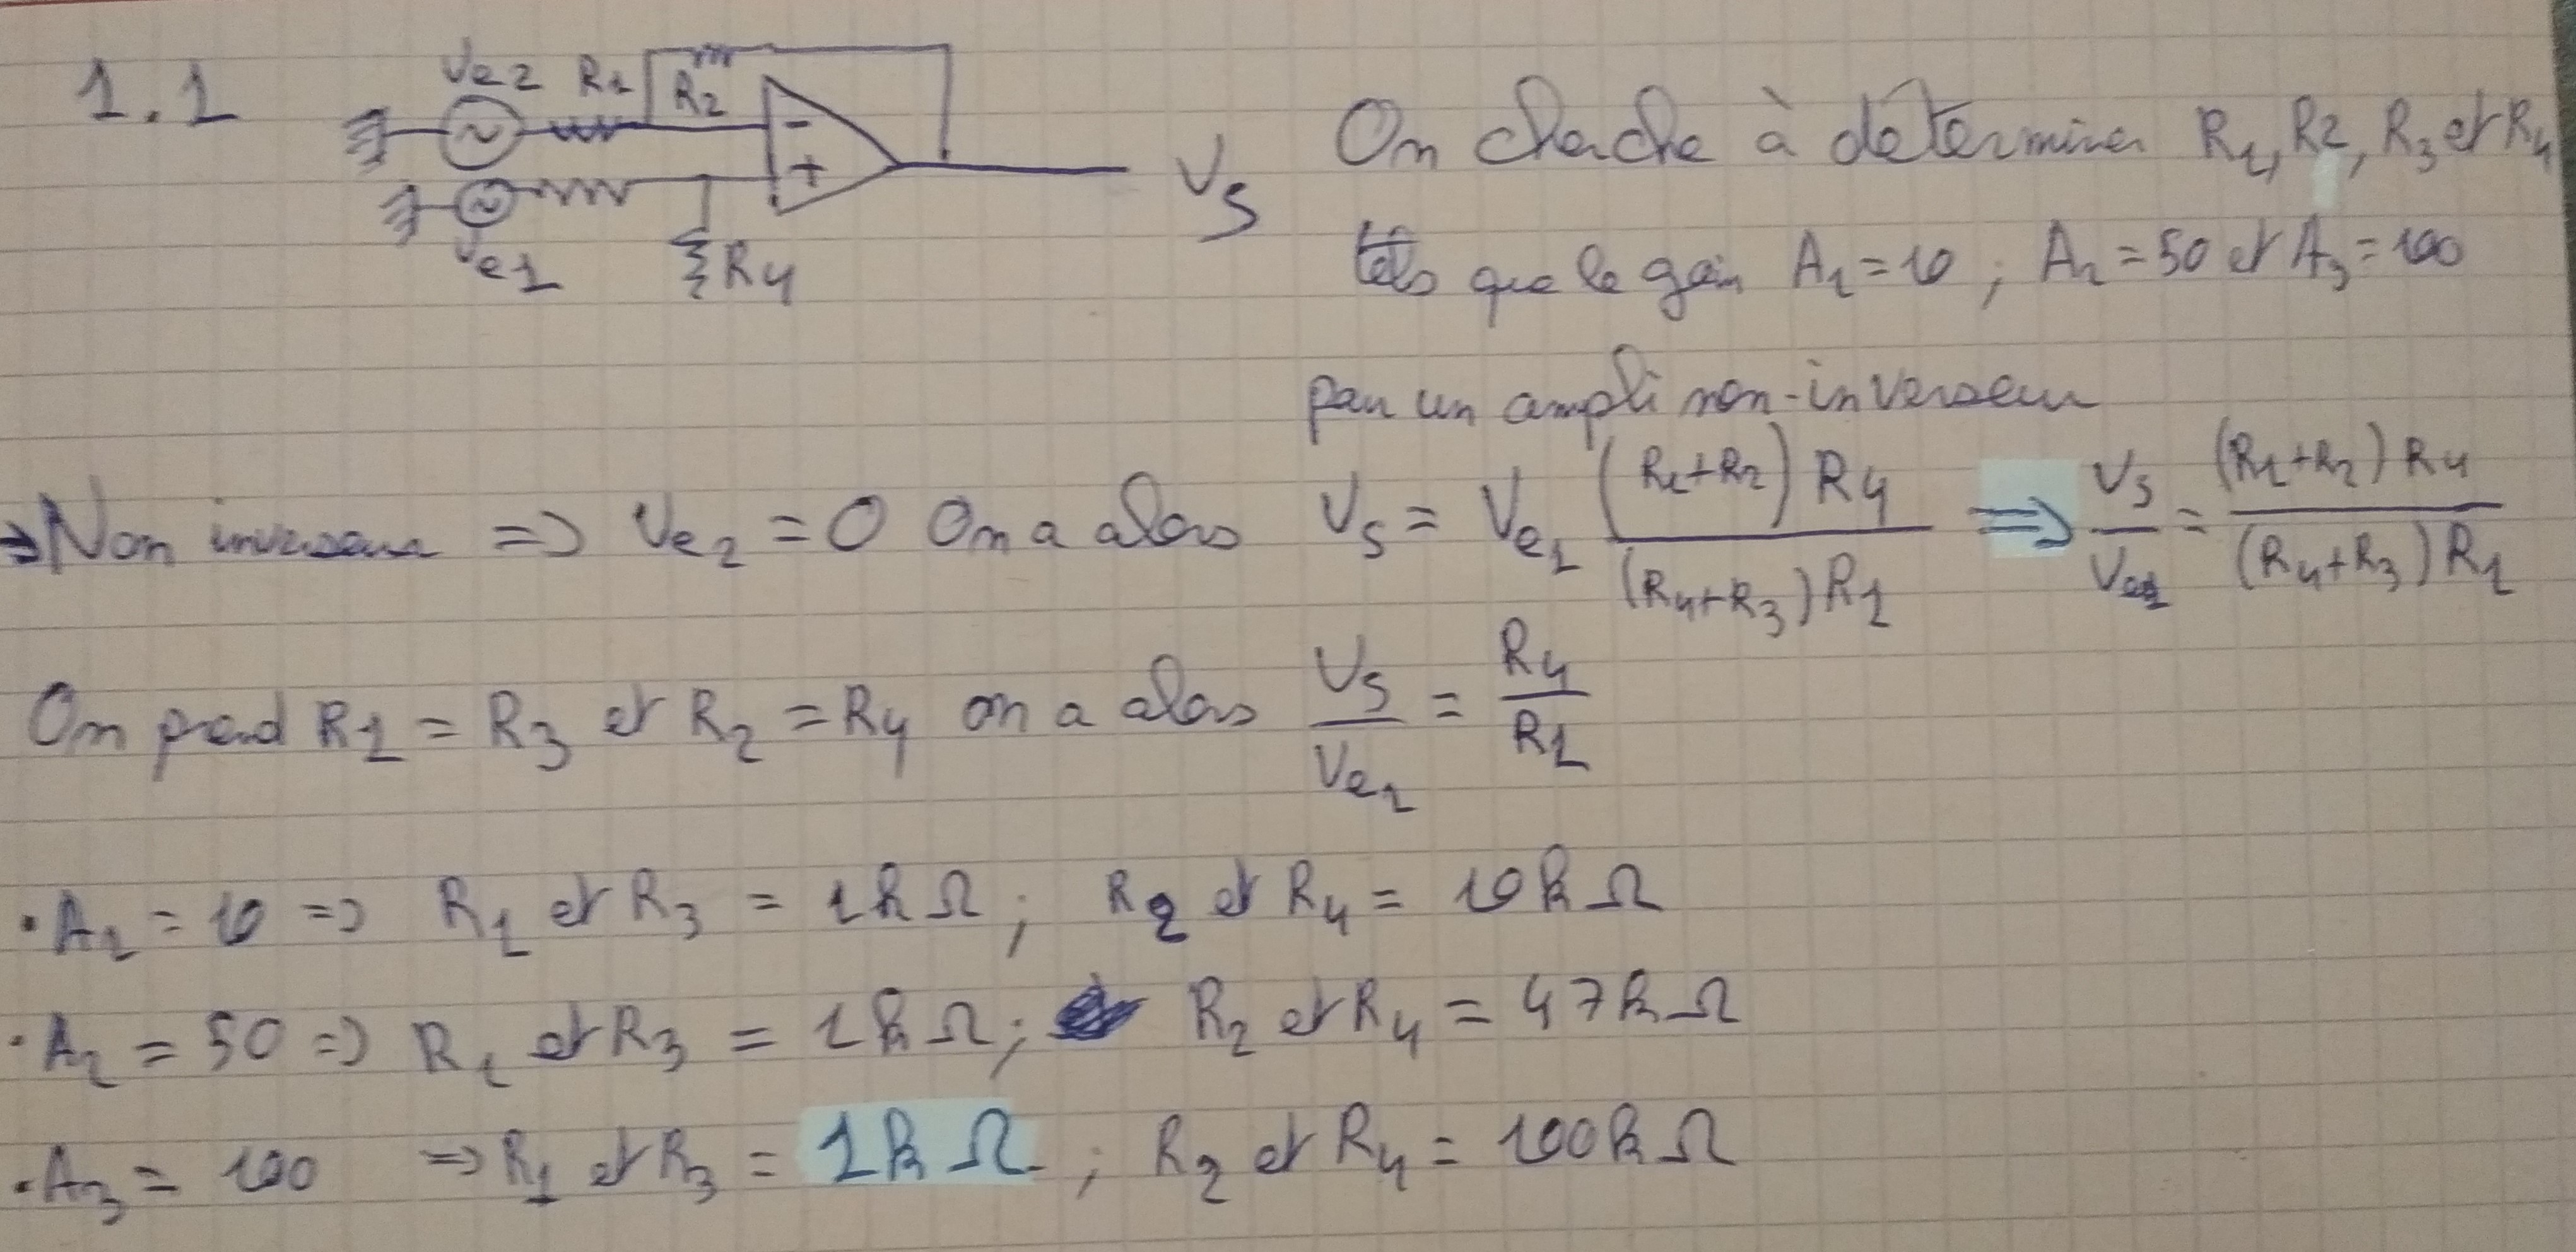 1.1
Ve2 R1 R2
- +
Ve1 R4 Vs
On cherche à déterminer R1, R2, R3 et R4
tels que le gain A1 = 10 ; A2 = 50 et A3 = 100
par un ampli non-inverseur
→ Non inverseur => Ve2 = 0 On a alors Vs = Ve1 (R1+R2) R4 / (R4+R3) R1 => Vs / Ve1 = (R1+R2) R4 / (R4+R3) R1
On prend R1 = R3 et R2 = R4 on a alors Vs / Ve1 = R4 / R1
• A1 = 10 => R1 et R3 = 1kΩ ; R2 et R4 = 10kΩ
• A2 = 50 => R1 et R3 = 1kΩ ; R2 et R4 = 47kΩ
• A3 = 100 => R1 et R3 = 1kΩ ; R2 et R4 = 100kΩ